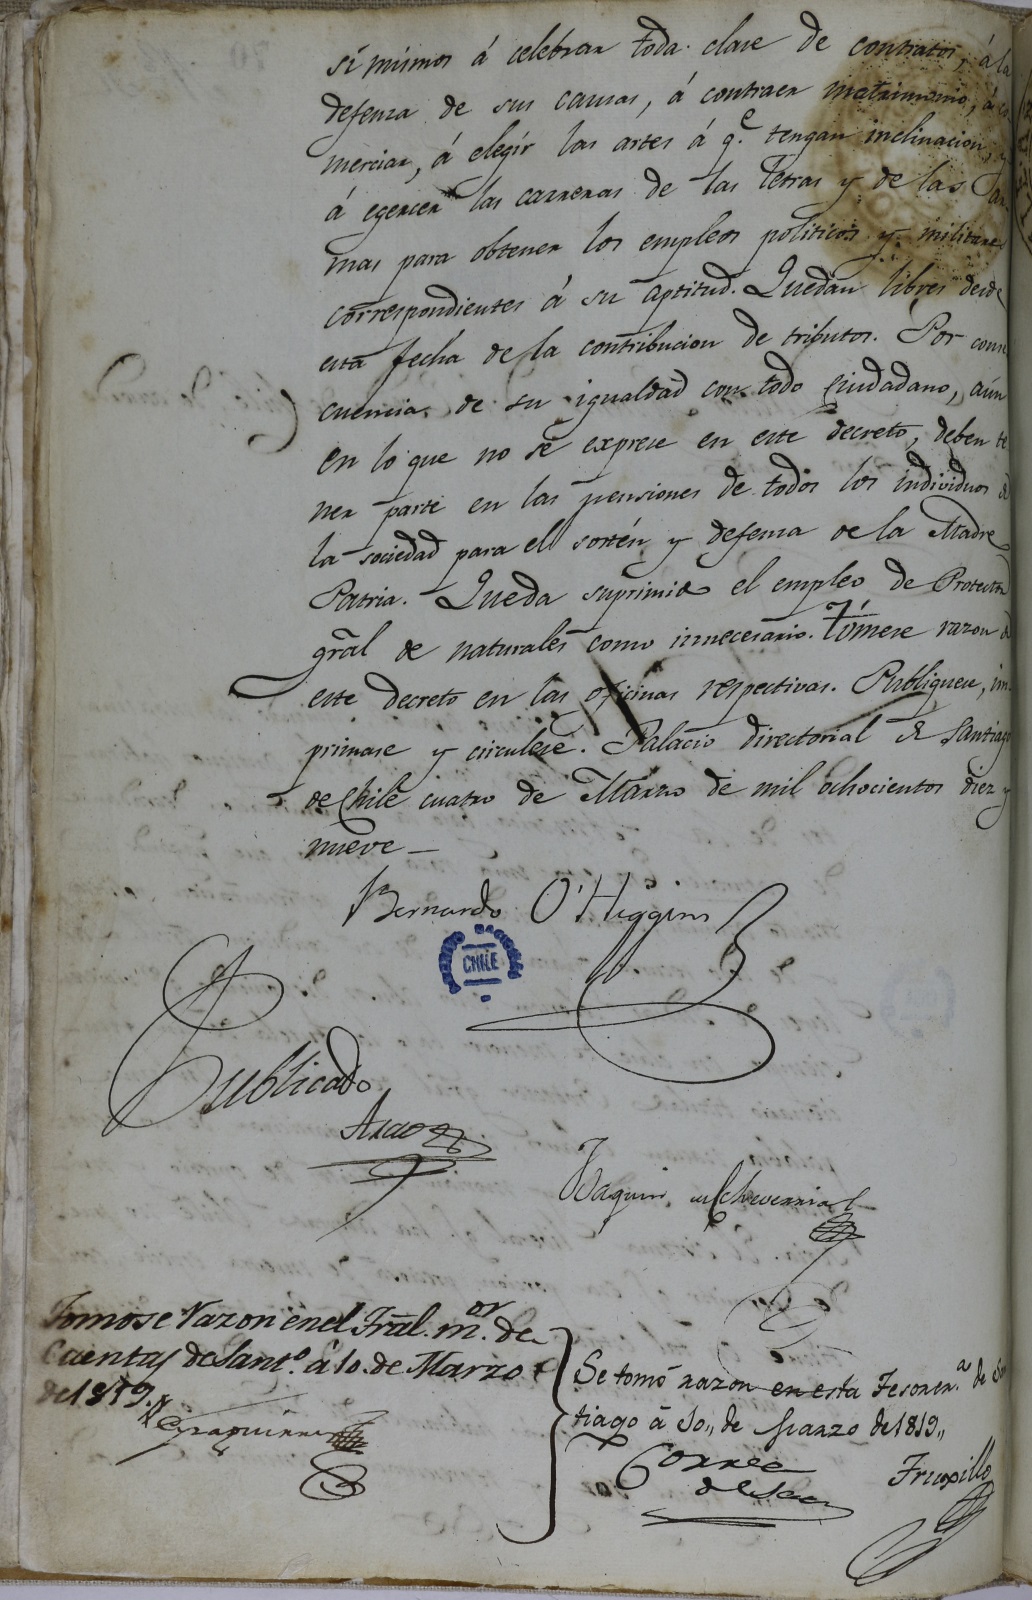 sí mismos á celebrar toda clase de contratos, á la
defenza de sus causas, á contraer matrimonio, á co
merciar, á elegír las artes á q.e tengan inclinacion, y
á egercer las carreras de las Letras y de las Ar-
mas para obtener los empleos politicos y militare
correspondientes á su aptitud. Quedan libres desde
esta fecha de la contribucion de tributos. Por conse
cuencia de su igualdad con todo Ciudadano, aún
en lo que no se exprese en este decreto, deben te
ner parte en las pensiones de todos los individuos de
la sociedad para el sostén y defensa de la Madre
Patria. Queda suprimido el empleo de Protector
gral de naturales como innecesario. Tómese razon de
este decreto en las oficinas respectivas. Publiquese, im-
primase y circulese. Palacio directorial de Santiago
de Chile cuatro de Marzo de mil ochocientos diez y
nueve_
Bernardo O'Higgins
CHILE
Publicado
Joaquin de Echeverria
Tomose Razon en el Tral. m.or de
Cuentas de Sant.o á 10. de Marzo
de 1819.
Se tomó razon en esta Tesorer.a de San
tiago á 10,, de Marzo de 1819,,
Correa
de Saa
Truxillo